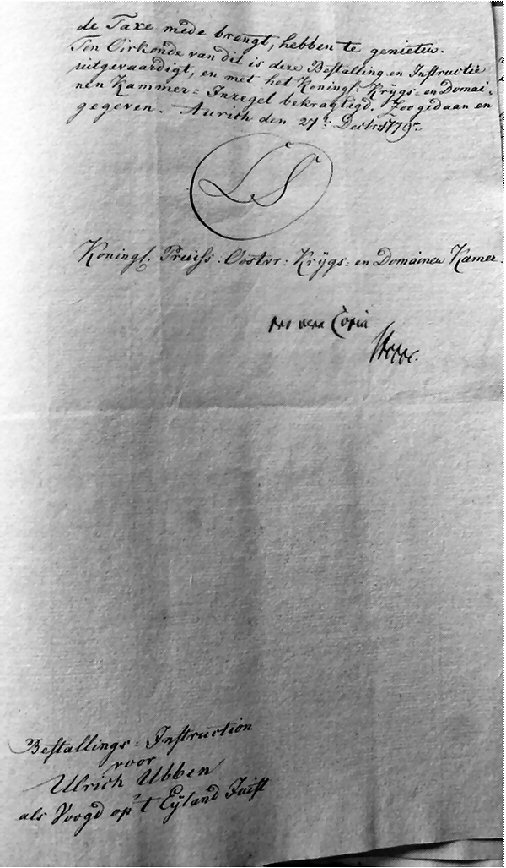 de Taxe mede brengt, hebben te genieten.
Ten Oirkonde van dit is deze Bestalling en Instructie
uitgevaardigt, en met het Koningl. Krÿgs- en Domai-
nen Kammer-Inzegel bekragtigd. Zoo gedaan en
gegeven. Aurich den 27t. Decbr. 1779.
LS
Koningl. Preuss: Oostvr: Krÿgs- en Domainen Kamer.
pro vera Copia
Bestallings-Instruction
voor
Ulrich Ubben
als Voogd op't Eÿland Juist